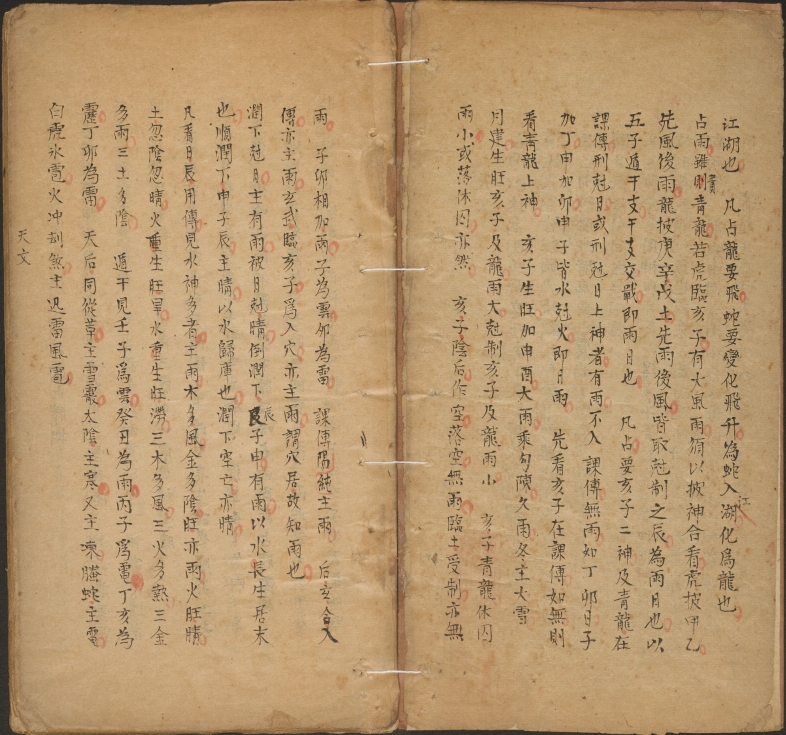 江湖也　凡占龍要飛蛇要變化飛升為蛇入湖化爲龍也
江
占雨雖則青龍若虎臨亥子有大風雨須以披神合看虎披甲乙
書
先風後雨龍披庚辛戊土先雨後風皆取尅制之辰為雨日也以
五子遁干支干支交戰即雨日也　凡占要亥子二神及青龍在
課傳刑尅日或刑尅日上神者有雨不入課傳無雨如丁卯日子
加丁申加卯申子皆水尅火即日雨　先看亥子在課傳如無則
看青龍上神　亥子生旺加申酉大雨乘勾陳久雨冬主大雪
月建生旺亥子及龍雨大尅制亥子及龍雨小　亥子青龍休囚
雨小或落休囚亦然　亥子陰后作空落空無雨臨土受制亦無
雨　子卯相加雨子為雲卯為雷　課傳陽純主雨　后玄合入
傳亦主雨玄武臨亥子爲入穴亦主雨謂穴居故知雨也
潤下尅日主有雨被日尅晴倒潤下辰子申有雨以水長生居末
也順潤下申子辰主晴以水歸庫也潤下空亡亦晴
凡看日辰用傳見水神多者主雨木多風金多陰旺亦雨火旺晴
土忽陰忽晴火重生旺旱水重生旺澇三木多風三火多熱三金
多雨三土多陰　遁干見壬子爲雲癸丑為雨丙子爲電丁亥為
丁卯為雷　天后同從革主雪霰太陰主寒又主凍螣蛇主電
白虎氷雹火冲刦煞主迅雷風電
天文